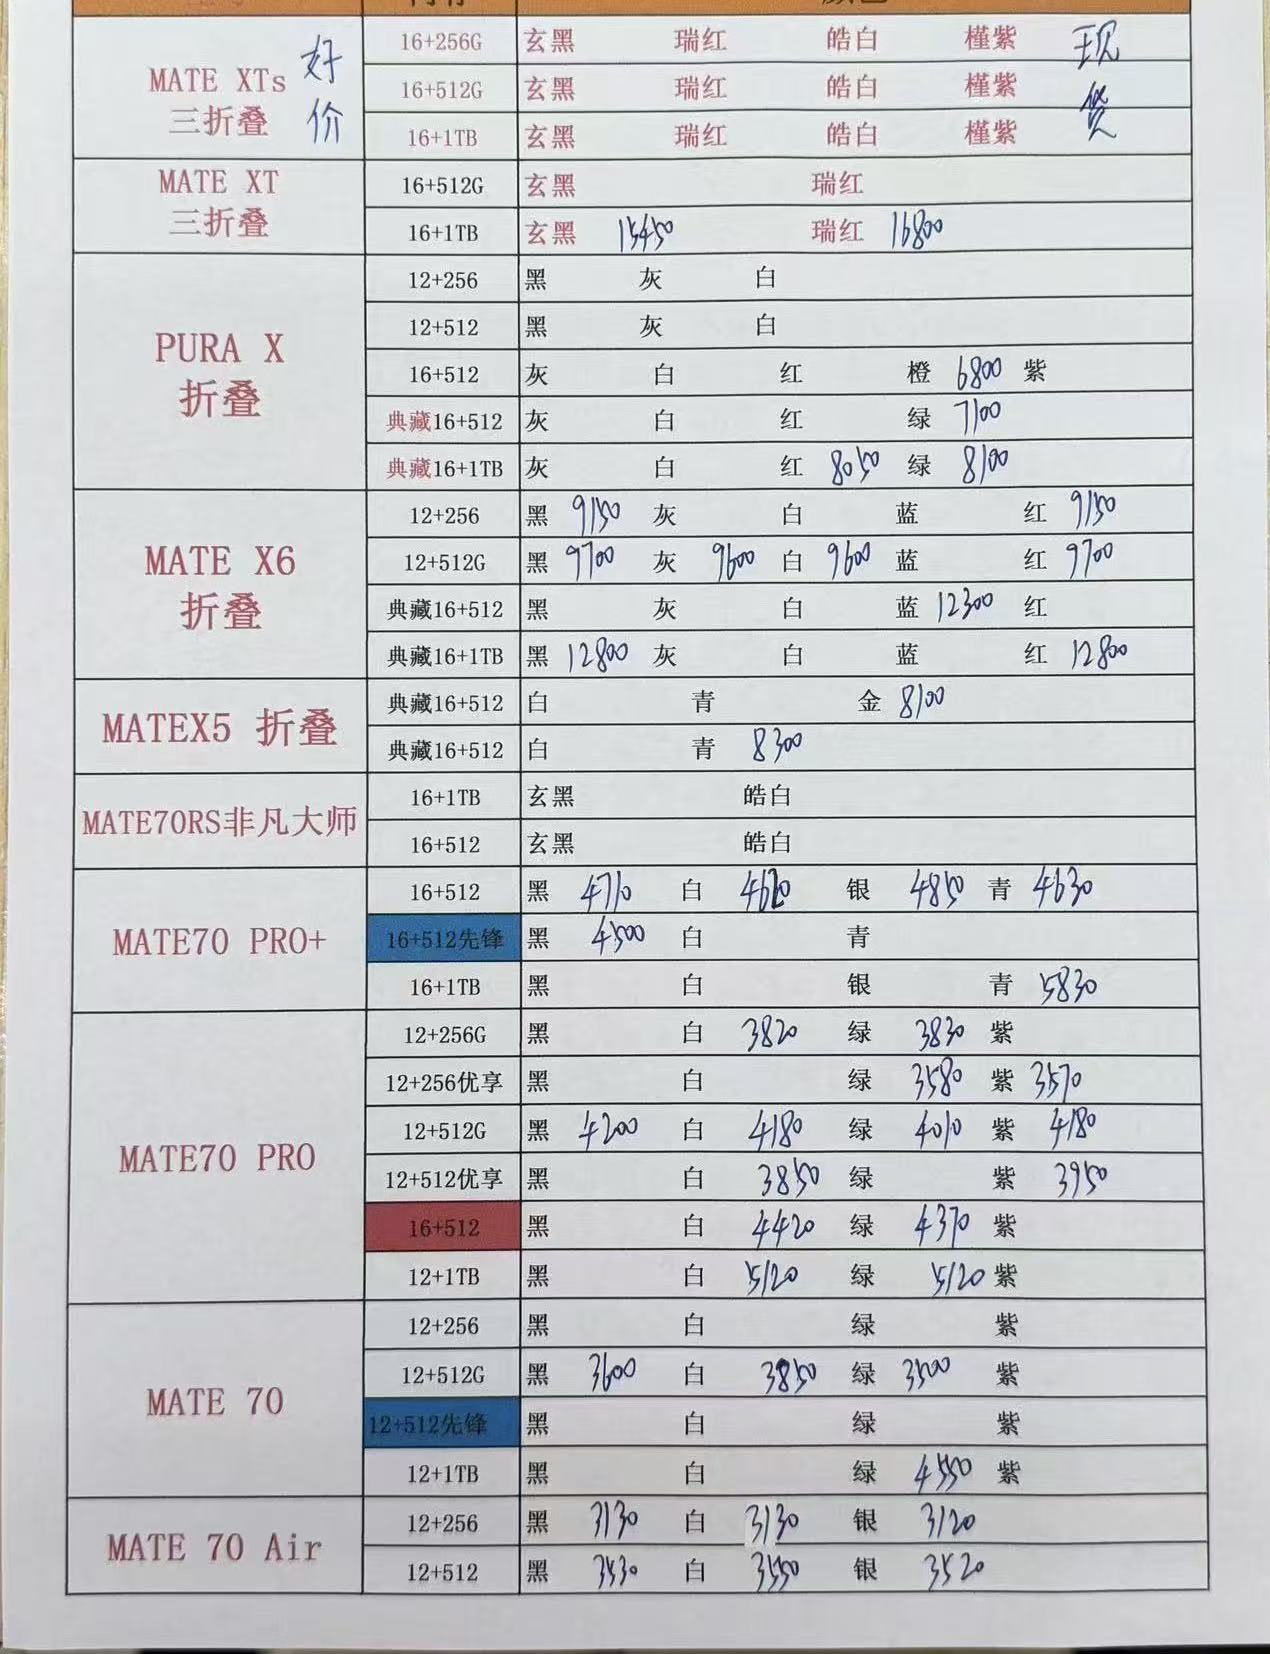 内存 颜色
MATE XTs 三折叠 好价
16+256G 玄黑 瑞红 皓白 槿紫 现
16+512G 玄黑 瑞红 皓白 槿紫 货
16+1TB 玄黑 瑞红 皓白 槿紫
MATE XT 三折叠
16+512G 玄黑 瑞红
16+1TB 玄黑 15450 瑞红 16800
PURA X 折叠
12+256 黑 灰 白
12+512 黑 灰 白
16+512 灰 白 红 橙 6800 紫
典藏16+512 灰 白 红 绿 7100
典藏16+1TB 灰 白 红 8050 绿 8100
MATE X6 折叠
12+256 黑 9150 灰 白 蓝 红 9150
12+512G 黑 9700 灰 9600 白 9600 蓝 红 9700
典藏16+512 黑 灰 白 蓝 12300 红
典藏16+1TB 黑 12800 灰 白 蓝 红 12800
MATEX5 折叠
典藏16+512 白 青 金 8100
典藏16+512 白 青 8300
MATE70RS非凡大师
16+1TB 玄黑 皓白
16+512 玄黑 皓白
MATE70 PRO+
16+512 黑 4710 白 银 4850 青 4630
16+512先锋 黑 4500 白 青
16+1TB 黑 白 银 青 5830
MATE70 PRO
12+256G 黑 白 3820 绿 3830 紫
12+256优享 黑 白 绿 3580 紫 3570
12+512G 黑 4200 白 4180 绿 4010 紫 4180
12+512优享 黑 白 3850 绿 紫 3950
16+512 黑 白 4420 绿 4370 紫
12+1TB 黑 白 5120 绿 5120 紫
MATE 70
12+256 黑 白 绿 紫
12+512G 黑 3600 白 3850 绿 3500 紫
12+512先锋 黑 白 绿 紫
12+1TB 黑 白 绿 4550 紫
MATE 70 Air
12+256 黑 3130 白 3130 银 3120
12+512 黑 3530 白 3550 银 3520